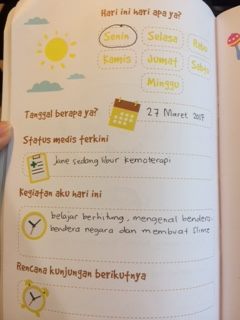 Hari ini hari apa ya?
Senin Selasa Rabu
Kamis Jumat Sabtu
Minggu
Tanggal berapa ya?
27 Maret 2017
Status medis terkini
Jane sedang libur kemoterapi
Kegiatan aku hari ini
belajar berhitung, mengenal bendera-
bendera negara dan membuat Slime
Rencana kunjungan berikutnya